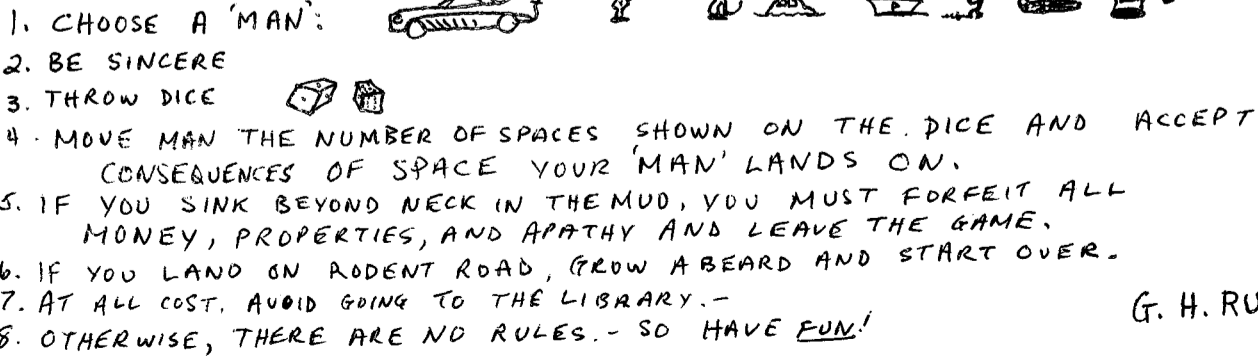 1. CHOOSE A 'MAN':
2. BE SINCERE
3. THROW DICE
4. MOVE MAN THE NUMBER OF SPACES SHOWN ON THE DICE AND ACCEPT
CONSEQUENCES OF SPACE YOUR 'MAN' LANDS ON.
5. IF YOU SINK BEYOND NECK IN THE MUD, YOU MUST FORFEIT ALL
MONEY, PROPERTIES, AND APATHY AND LEAVE THE GAME.
6. IF YOU LAND ON RODENT ROAD, GROW A BEARD AND START OVER.
7. AT ALL COST, AVOID GOING TO THE LIBRARY.-
G. H. RU
8. OTHERWISE, THERE ARE NO RULES.- SO HAVE FUN!